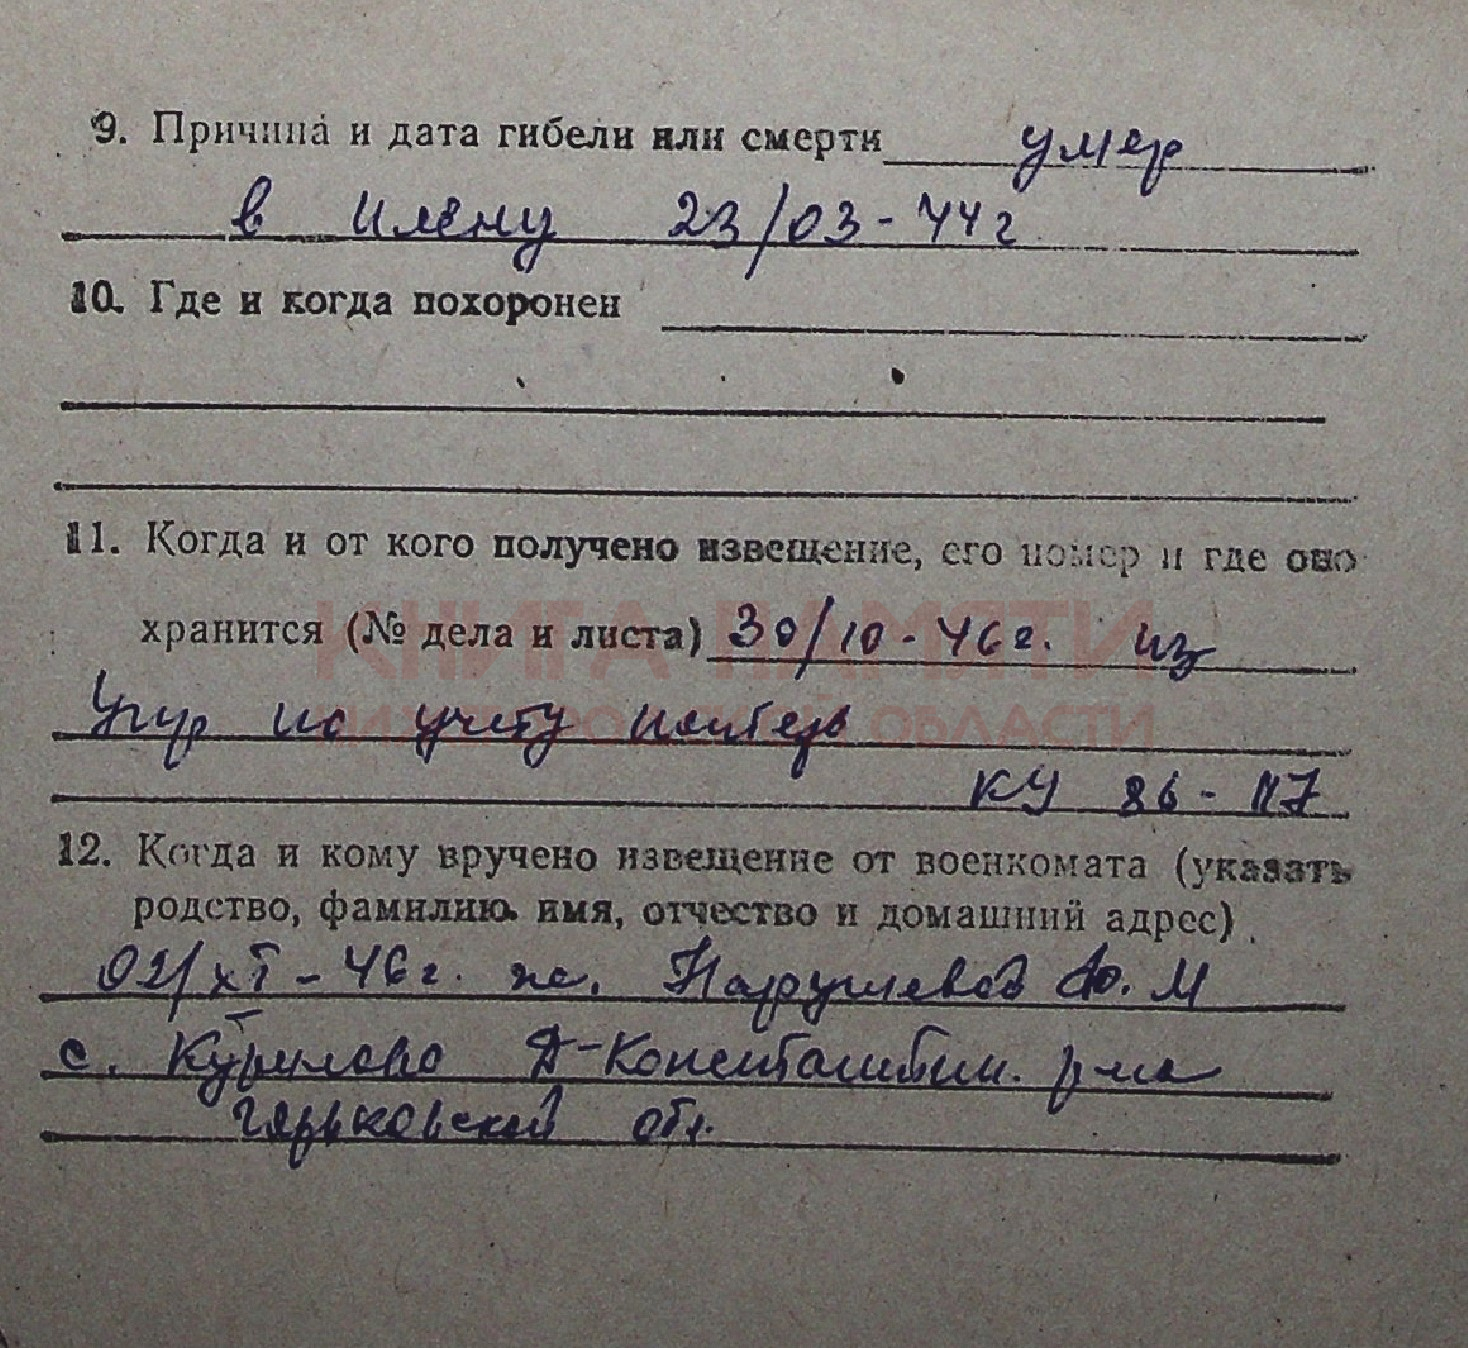 9. Причина и дата гибели или смерти умер
в плену 23/03-44г
10. Где и когда похоронен
11. Когда и от кого получено извещение, его номер и где оно
КНИГА ПАМЯТИ
хранится (№ дела и листа) 30/10-46г. из
Упр по учету потерь
НИЖЕГОРОДСКОЙ ОБЛАСТИ
КУ 86-117
12. Когда и кому вручено извещение от военкомата (указать
родство, фамилию, имя, отчество и домашний адрес)
02/XI-46г. ж. Ю. М
с. Курилово Д-Константин. р-на
горьковской обл.